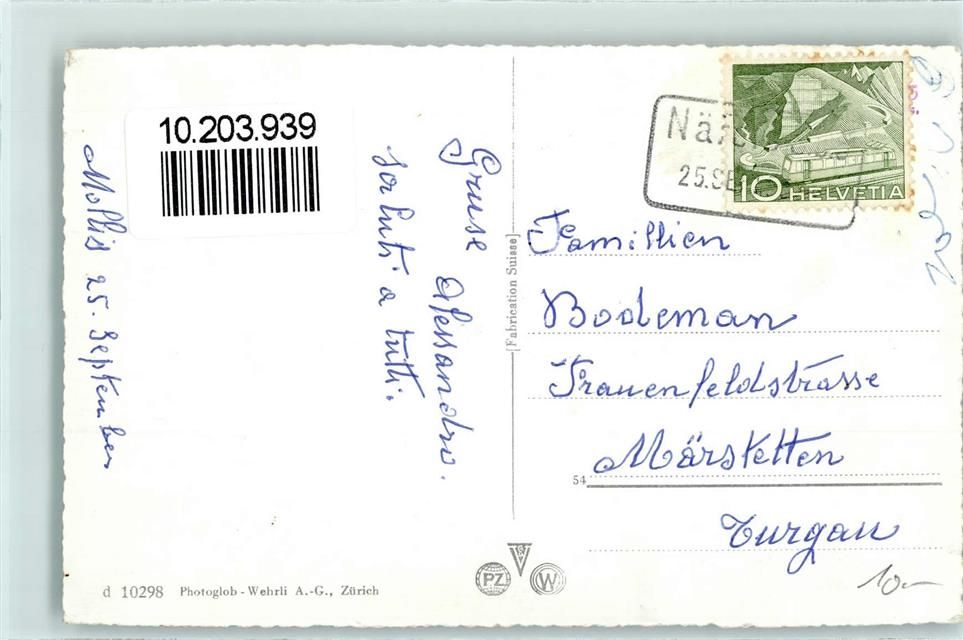 10.203.939
Mollis 25. September
saluti a tutti.
Gruse Alessandro.
[Fabrication Suisse]
25.SE
10 HELVETIA
Familien
Bodeman
Frauenfeldstrasse
54
Märstetten
Turgau
d 10298 Photoglob-Wehrli A.-G., Zürich
PZ
W
10.-